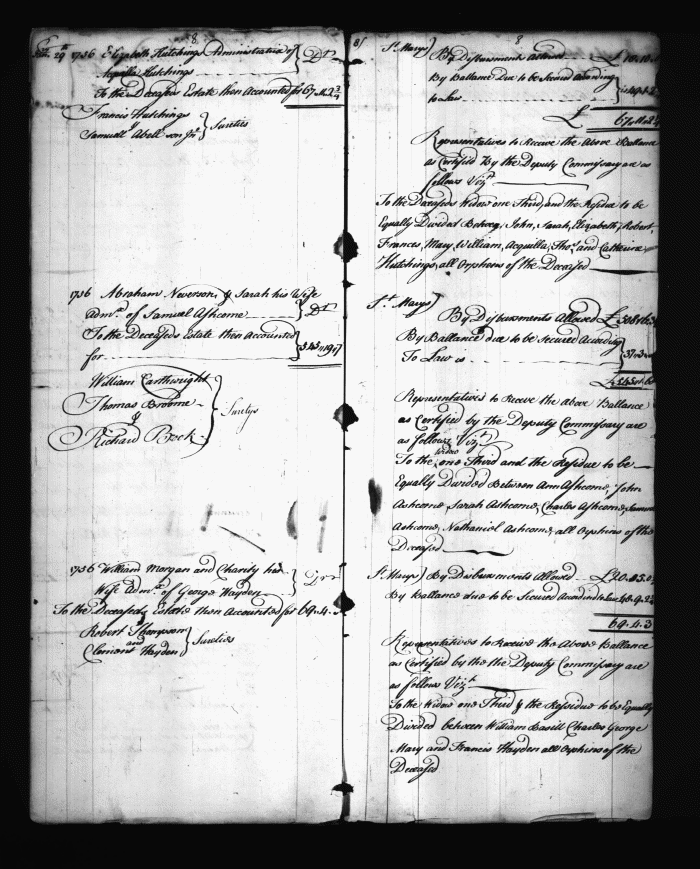 8
29th 1736 Elizabeth Hutchings Administratrix of } Dr
Acquilla Hutchings
To the Deceased's Estate then Accounted for 67.11.2 3/4
Francis Hutchings
&
Samuell Abell son Jnr } Sureties
1736 Abraham Neverson & Sarah his Wife
admx of Samuel Ashcome } Dr
To the Deceased's Estate then Accounted
for 545.19.7
William Carthwright
Thomas Broome
&
Richard Bock } Suretys
1736 William Morgan and Charity his
Wife Admx of George Hayden
To the Deceased's Estate then Accounted for 69.4.
Robert Thompson
and
Clement Hayden } Sureties
8
8
St. Marys } By Disbursments £
By Ballance Due to be Secured According
to Law
£ 67.11.2
Representatives to Receive the Above Ballance
as Certified by the Deputy Commissary are as
follows Vizt
To the Deceaseds Widow one Third, and the Residue to be
Equally Divided Betweg, John, Sarah, Elizabeth, Robert,
Frances, Mary, William, Acquilla, Thos. and Catherine
Hutchings, all Orphans of the Deceased
St. Marys } By Disbursments Allowed £
By Ballance due to be Secured According
To Law is
£
Representatives to Receve the Above Ballance
as Certified by the Deputy Commissary are
as follows Vizt
To the widow one Third and the Residue to be
Equally Divided Between Ann Ashcome, John
Ashcome, Sarah Ashcome, Charles Ashcome,
Ashcome, Nathaniel Ashcome, all Orphins of the
Deceased
St. Marys } By Disbursments Allowed £20.15.0
By Ballance due to be Secured According to Law 48.9.3
69.4.3
Representatives to Receive the Above Ballance
as Certified by the the Deputy Commissary are
as follows Vizt
To the Widow one Third & the Residue to be Equally
Divided between William Basill Charles George
Mary and Francis Hayden all Orphins of the
Deceased